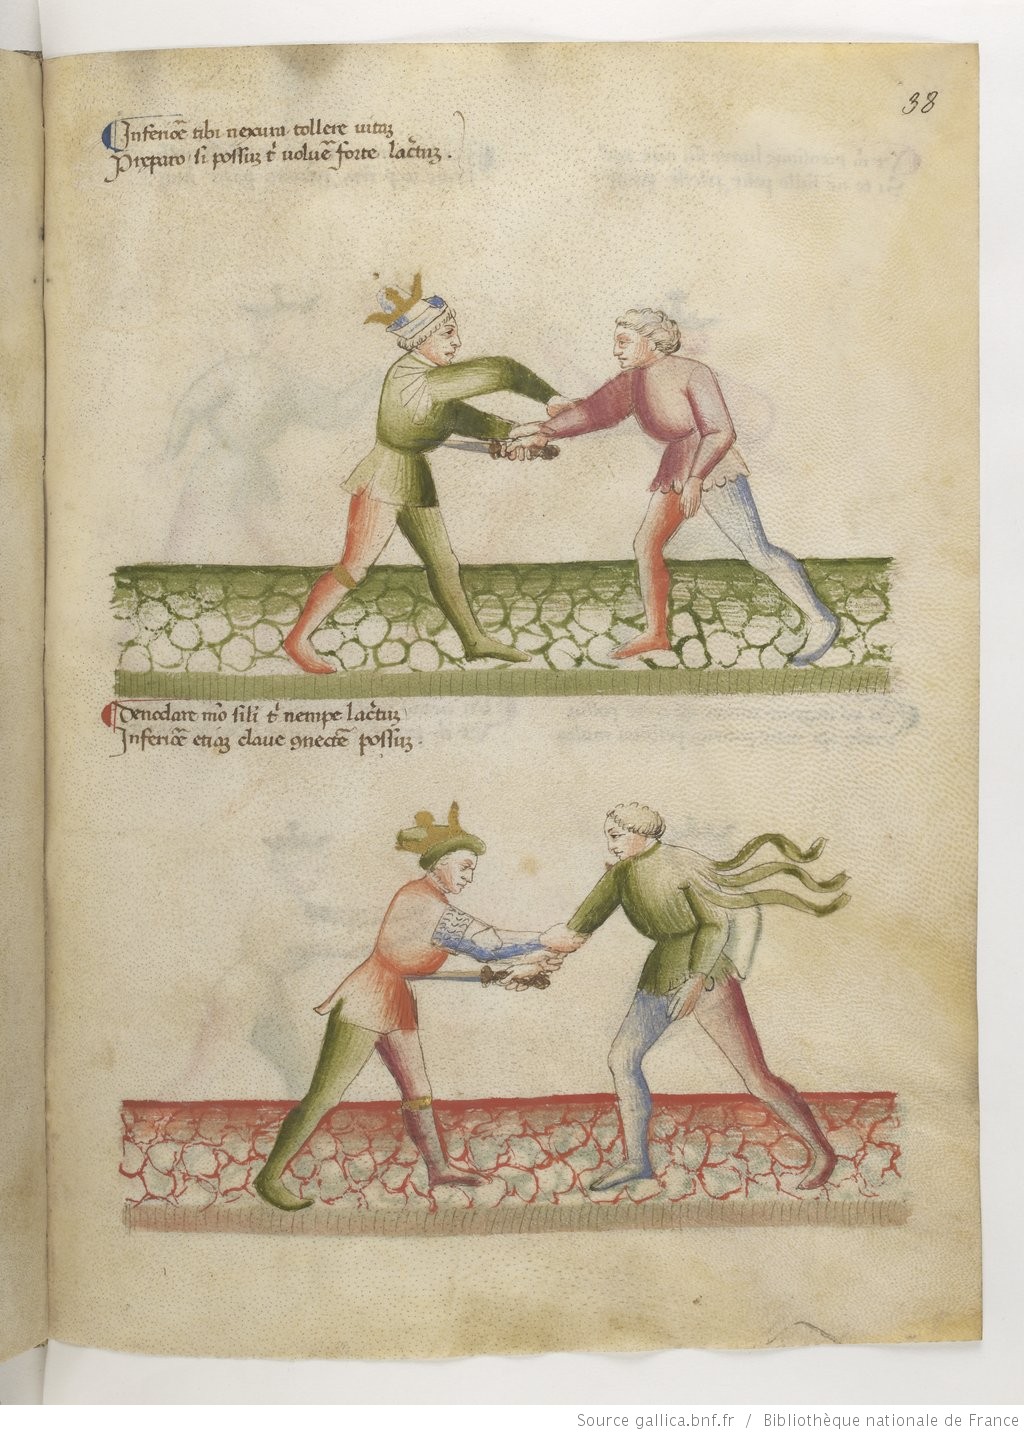 38
Inferiōē tibi nexum tollere vitaꝫ
Preparo si possuꝫ tͥ voluēᷓ forte lac̄tuꝫ.
Denodare mō sili tͥ nempe lac̄tuꝫ
Inferiōē etiaꝫ claue ꝯnectēᷓ possuꝫ.
Source gallica.bnf.fr / Bibliothèque nationale de France